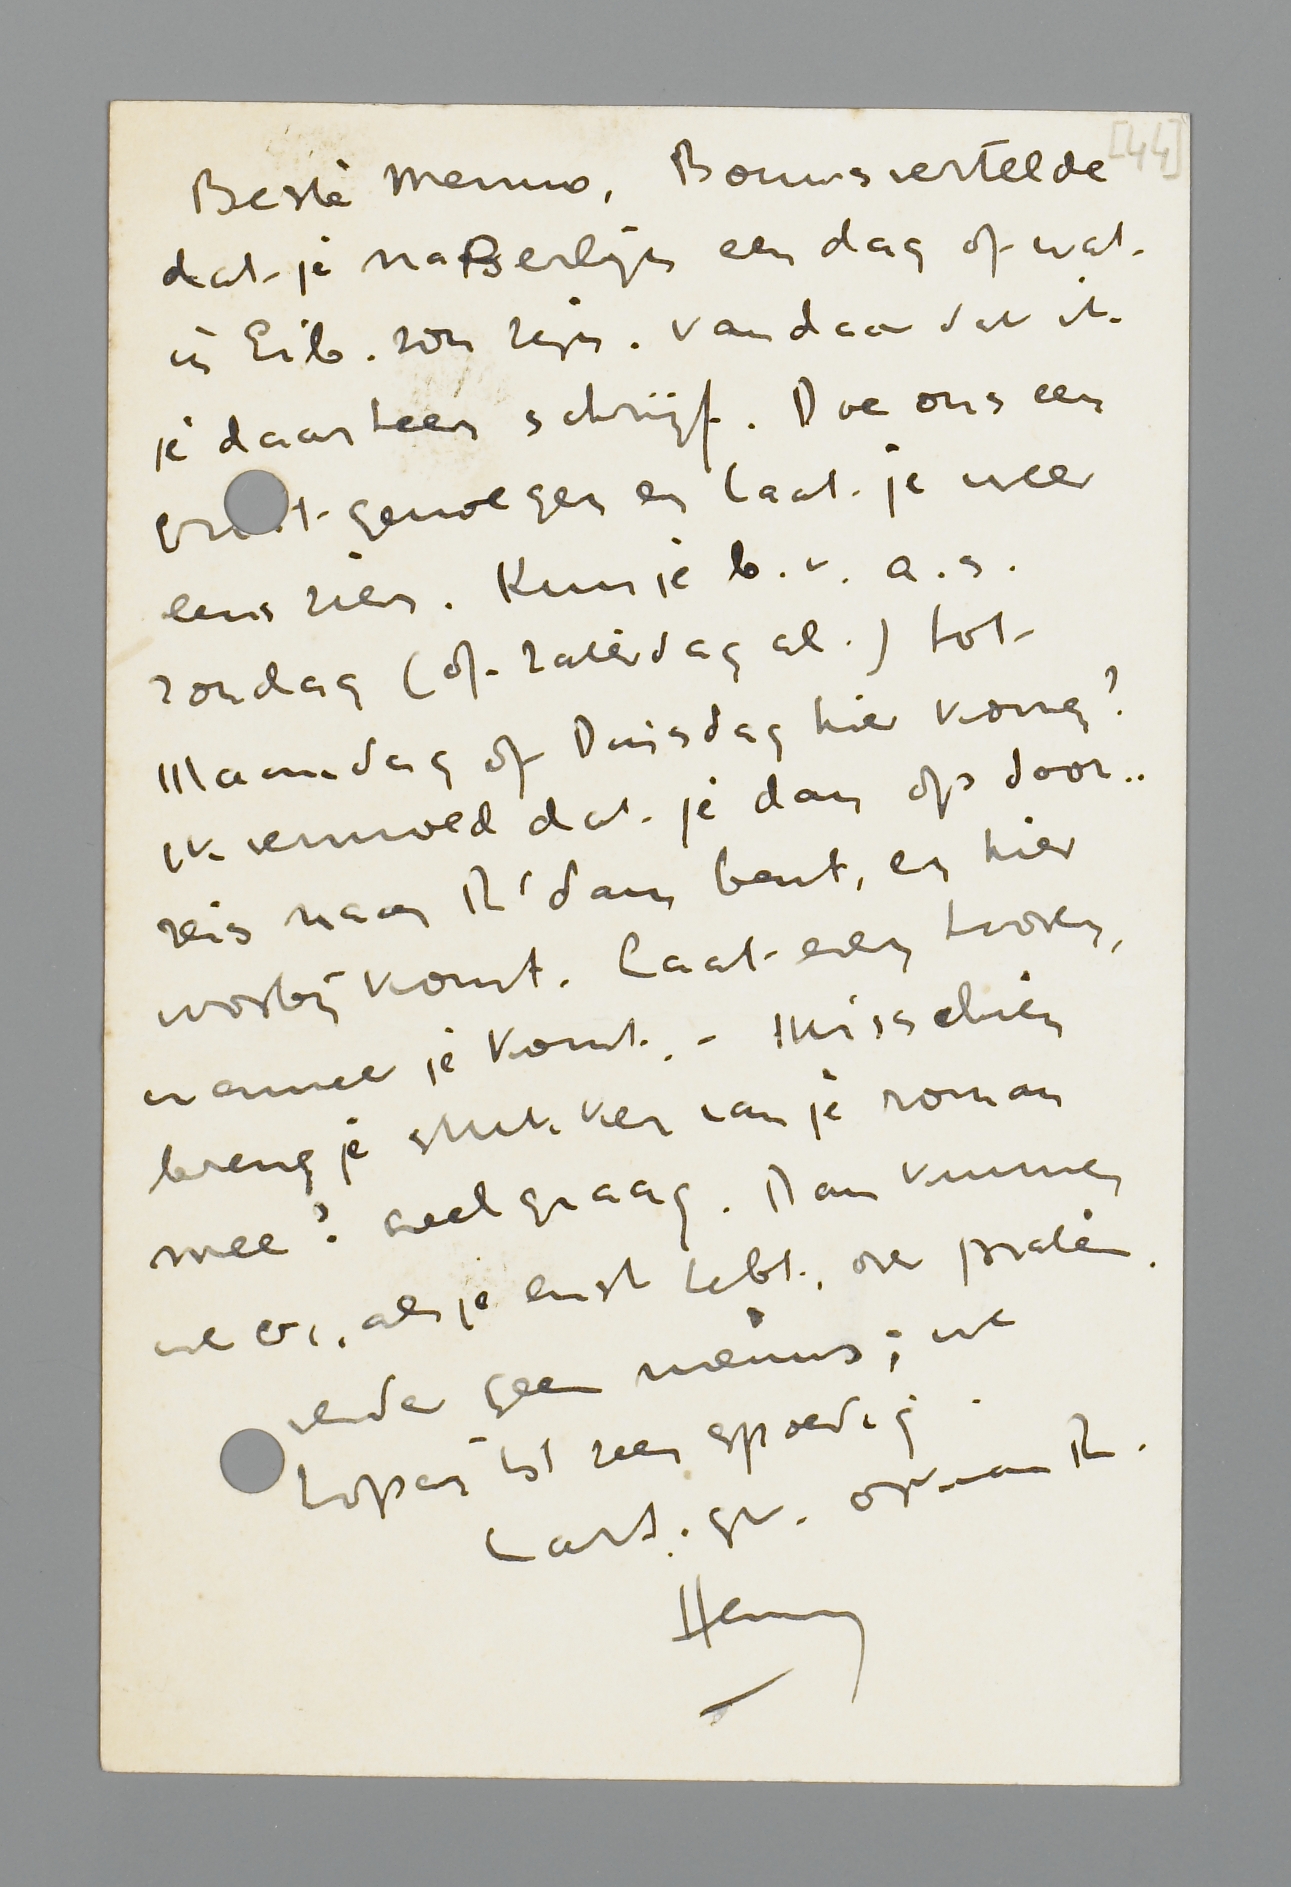 [44]
Beste Menno, Bouws vertelde
dat je na Berlijn een dag of wat
in Eib. zou zijn. Vandaar dat ik
je daarheen schrijf. Doe ons een
groot genoegen en laat je weer
eens zien. Kun je b.v. a.s.
zondag (of zaterdag al.) tot
Maandag of Dinsdag hier komen?
Ik vermoed dat je dan op door-
reis naar R'dam bent, en hier
voorbij komt. Laat even hooren,
wanneer je komt. - Misschien
breng je stukken van je roman
mee? heel graag. Dan kunnen
we er, als je lust hebt, over praten.
verder geen nieuws; we
hopen tot zeer spoedig.
Hart. gr. ook van R.
Henny